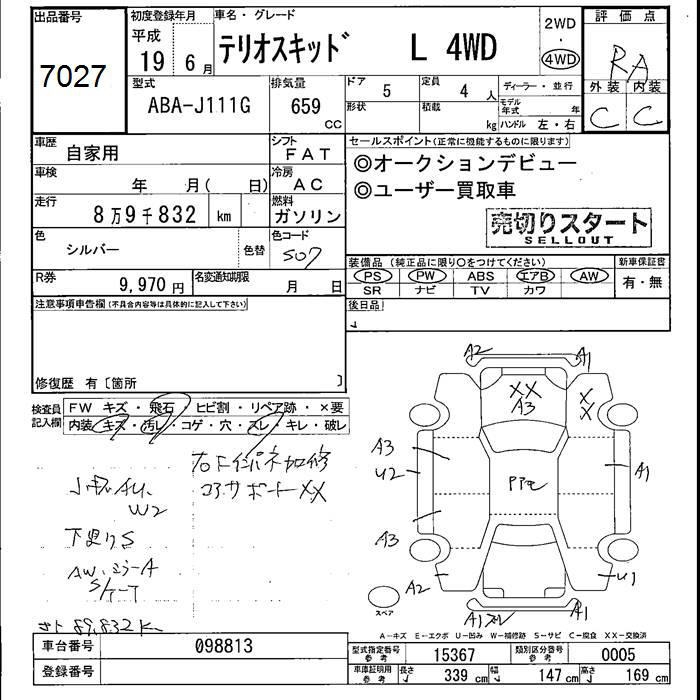 出品番号
7027
初度登録年月
平成
19 6 月
車名・グレード
テリオスキッド L 4WD
2WD
・
4WD
評価点
RA
外装 内装
C C
型式
ABA-J111G
排気量
659
cc
ドア 5
定員 4 人
形状
積載 kg
ディーラー・並行
モデル年式 年
ハンドル 左・右
車歴
自家用
シフト
FAT
車検
年 月( 日)
冷房
AC
走行
8万9千832 km
燃料
ガソリン
色
シルバー
色替
色コード
S07
R券
9,970 円
名変通知期限
月 日
セールスポイント(正常に機能するものに限ります)
◎オークションデビュー
◎ユーザー買取車
売切りスタート
SELLOUT
装備品(純正品に限り○をつけてください)
PS PW ABS エアB AW
SR ナビ TV カワ
新車保証書
有・無
後日品
注意事項申告欄(不具合内容等は具体的に記入して下さい)
修復歴 有〔箇所 〕
検査員記入欄
FW キズ・飛石・ヒビ割・リペア跡・×要
内装・キズ・汚レ・コゲ・穴・スレ・キレ・破レ
右Fインパネ加修
コアサポートXX
W2
下廻りS
AW、ミラーA
89,832K
A2 A1
XX
A3
X
X
A3
U2
A3
A2
A1
U1
A1
A1
スペア
A-キズ E-エクボ U-凹み W-補修跡 S-サビ C-腐食 XX-交換済
車台番号
098813
登録番号
型式指定番号
参考
15367
類別区分番号
参考
0005
車庫証明用
参考
長さ 339 cm
幅 147 cm
高さ 169 cm